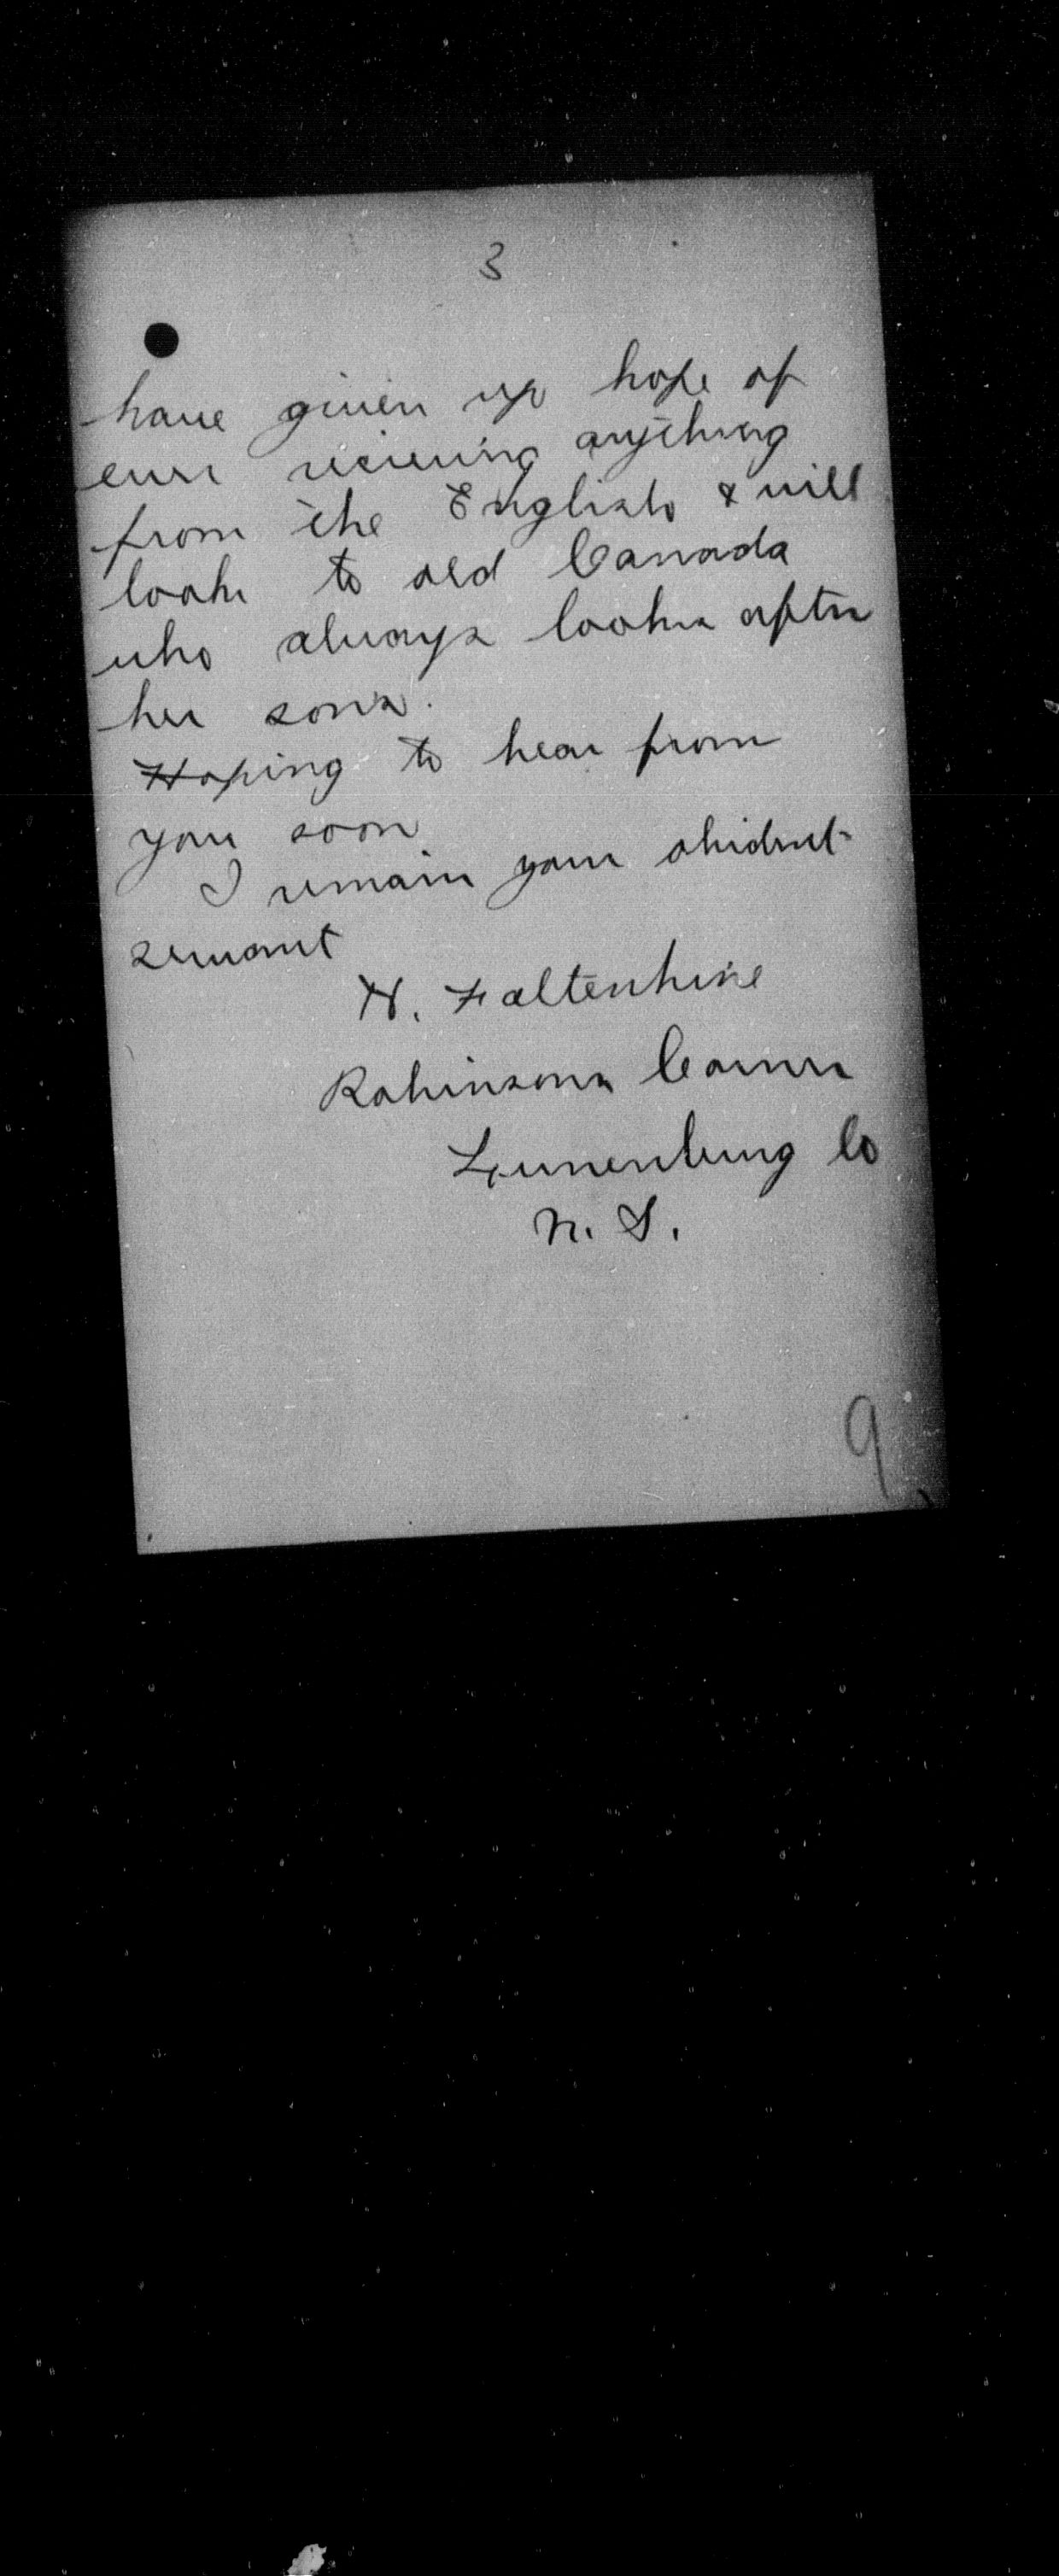 3
have given up hope of
ever recieving anything
from the English & will
look to old Canada
who always looks after
her sons.
Hoping to hear from
you soon
I remain your obident
servant
H. Faltenhine
Robinsons Corner
Lunenburg Co
N. S.
9